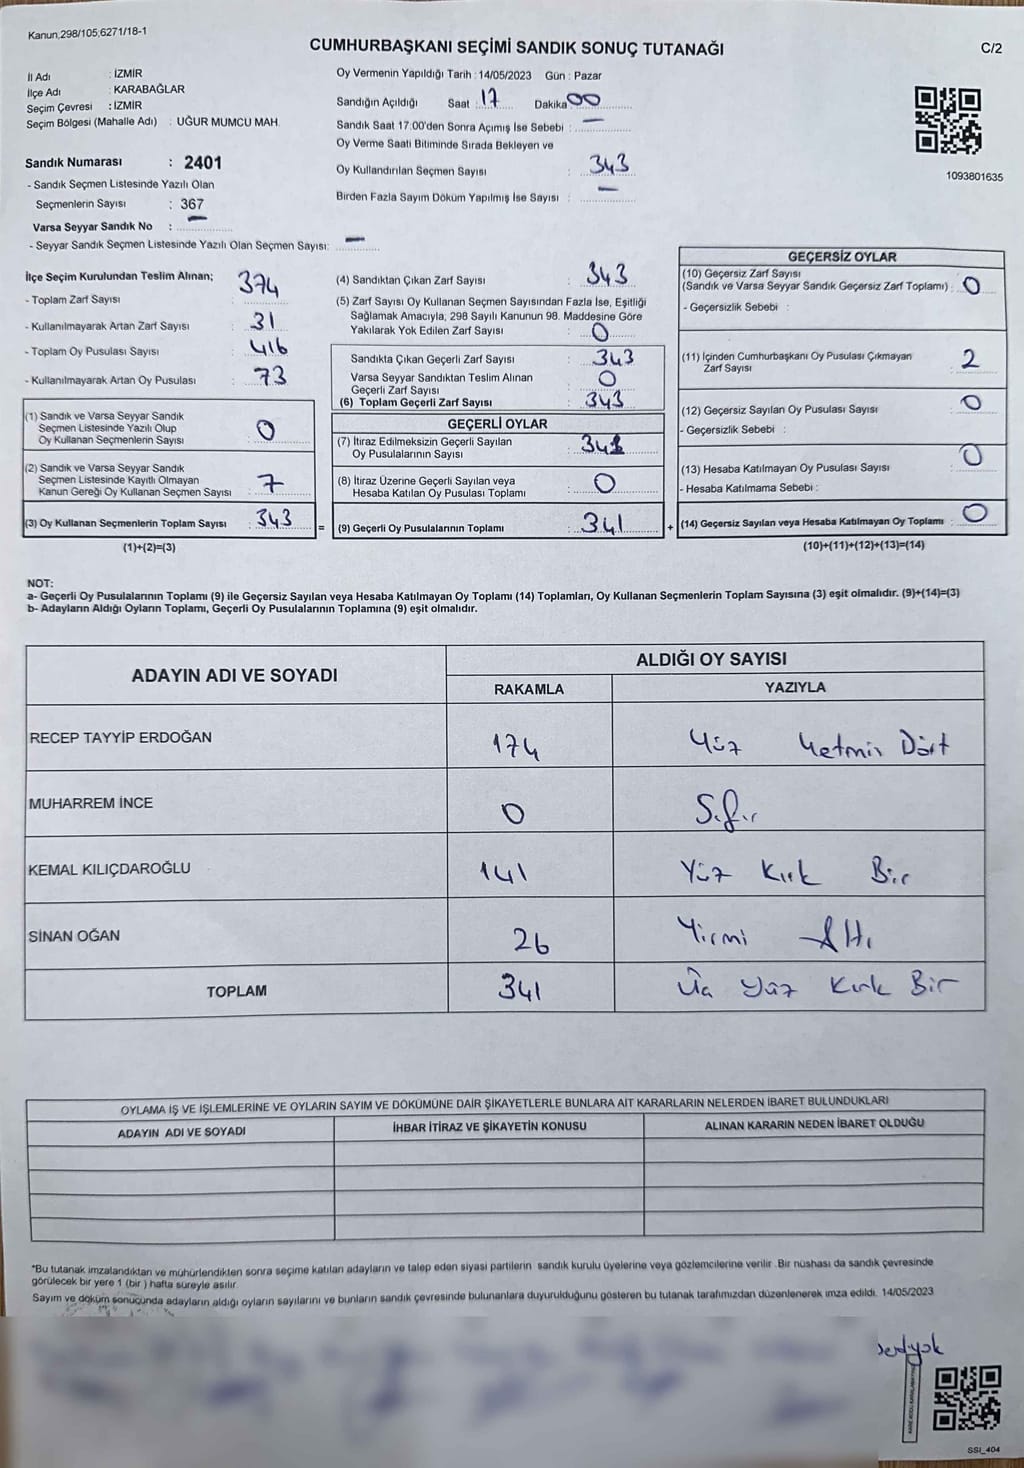 Kanun,298/105;6271/18-1
CUMHURBAŞKANI SEÇİMİ SANDIK SONUÇ TUTANAĞI
C/2
İl Adı : İZMİR
İlçe Adı : KARABAĞLAR
Seçim Çevresi : İZMİR
Seçim Bölgesi (Mahalle Adı) : UĞUR MUMCU MAH.
Sandık Numarası : 2401
- Sandık Seçmen Listesinde Yazılı Olan
Seçmenlerin Sayısı : 367
Varsa Seyyar Sandık No : —
- Seyyar Sandık Seçmen Listesinde Yazılı Olan Seçmen Sayısı: —
Oy Vermenin Yapıldığı Tarih : 14/05/2023 Gün : Pazar
Sandığın Açıldığı Saat : 17 Dakika 00
Sandık Saat 17:00'den Sonra Açımış İse Sebebi : —
Oy Verme Saati Bitiminde Sırada Bekleyen ve
Oy Kullandırılan Seçmen Sayısı : 343
Birden Fazla Sayım Döküm Yapılmış İse Sayısı : —
1093801635
İlçe Seçim Kurulundan Teslim Alınan;
- Toplam Zarf Sayısı : 374
- Kullanılmayarak Artan Zarf Sayısı : 31
- Toplam Oy Pusulası Sayısı : 416
- Kullanılmayarak Artan Oy Pusulası : 73
(1) Sandık ve Varsa Seyyar Sandık
Seçmen Listesinde Yazılı Olup
Oy Kullanan Seçmenlerin Sayısı : 0
(2) Sandık ve Varsa Seyyar Sandık
Seçmen Listesinde Kayıtlı Olmayan
Kanun Gereği Oy Kullanan Seçmen Sayısı : 7
(3) Oy Kullanan Seçmenlerin Toplam Sayısı : 343
(1)+(2)=(3)
(4) Sandıktan Çıkan Zarf Sayısı : 343
(5) Zarf Sayısı Oy Kullanan Seçmen Sayısından Fazla İse, Eşitliği
Sağlamak Amacıyla, 298 Sayılı Kanunun 98. Maddesine Göre
Yakılarak Yok Edilen Zarf Sayısı : 0
Sandıkta Çıkan Geçerli Zarf Sayısı : 343
Varsa Seyyar Sandıktan Teslim Alınan
Geçerli Zarf Sayısı : 0
(6) Toplam Geçerli Zarf Sayısı : 343
GEÇERLİ OYLAR
(7) İtiraz Edilmeksizin Geçerli Sayılan
Oy Pusulalarının Sayısı : 341
(8) İtiraz Üzerine Geçerli Sayılan veya
Hesaba Katılan Oy Pusulası Toplamı : 0
= (9) Geçerli Oy Pusulalarının Toplamı : 341 +
GEÇERSİZ OYLAR
(10) Geçersiz Zarf Sayısı
(Sandık ve Varsa Seyyar Sandık Geçersiz Zarf Toplamı) : 0
- Geçersizlik Sebebi :
(11) İçinden Cumhurbaşkanı Oy Pusulası Çıkmayan
Zarf Sayısı : 2
(12) Geçersiz Sayılan Oy Pusulası Sayısı : 0
- Geçersizlik Sebebi :
(13) Hesaba Katılmayan Oy Pusulası Sayısı : 0
- Hesaba Katılmama Sebebi :
(14) Geçersiz Sayılan veya Hesaba Katılmayan Oy Toplamı : 0
(10)+(11)+(12)+(13)=(14)
NOT:
a- Geçerli Oy Pusulalarının Toplamı (9) ile Geçersiz Sayılan veya Hesaba Katılmayan Oy Toplamı (14) Toplamları, Oy Kullanan Seçmenlerin Toplam Sayısına (3) eşit olmalıdır. (9)+(14)=(3)
b- Adayların Aldığı Oyların Toplamı, Geçerli Oy Pusulalarının Toplamına (9) eşit olmalıdır.
ADAYIN ADI VE SOYADI
ALDIĞI OY SAYISI
RAKAMLA YAZIYLA
RECEP TAYYİP ERDOĞAN 174 Yüz Yetmiş Dört
MUHARREM İNCE 0 Sıfır
KEMAL KILIÇDAROĞLU 141 Yüz Kırk Bir
SİNAN OĞAN 26 Yirmi Altı
TOPLAM 341 Üç Yüz Kırk Bir
OYLAMA İŞ VE İŞLEMLERİNE VE OYLARIN SAYIM VE DÖKÜMÜNE DAİR ŞİKAYETLERLE BUNLARA AİT KARARLARIN NELERDEN İBARET BULUNDUKLARI
ADAYIN ADI VE SOYADI İHBAR İTİRAZ VE ŞİKAYETİN KONUSU ALINAN KARARIN NEDEN İBARET OLDUĞU
*Bu tutanak imzalandıktan ve mühürlendikten sonra seçime katılan adayların ve talep eden siyasi partilerin sandık kurulu üyelerine veya gözlemcilerine verilir. Bir nüshası da sandık çevresinde
görülecek bir yere 1 (bir ) hafta süreyle asılır.
Sayım ve döküm sonucunda adayların aldığı oyların sayılarını ve bunların sandık çevresinde bulunanlara duyurulduğunu gösteren bu tutanak tarafımızdan düzenlenerek imza edildi. 14/05/2023
SSI_404